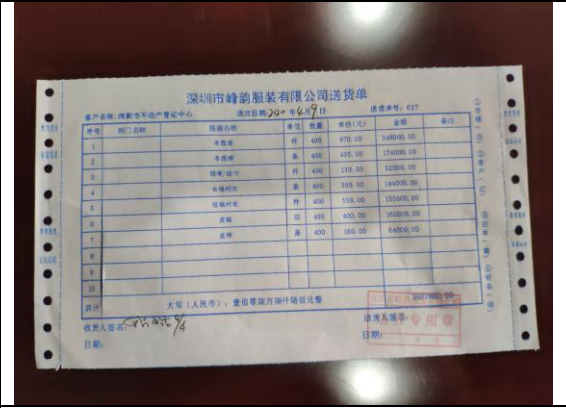 深圳市峰韵服装有限公司送货单
客户名称: 市不动产登记中心 送货日期: 年4月9日 送货单号: 017
序号 部门名称 服装名称 单位 数量 单价(元) 金额 备注
1 件 400 870.00 348000.00
2 条 400 435.00 174000.00
3 件 400 130.00 52000.00
4 长袖衬衣 条 400 360.00 144000.00
5 短袖衬衣 件 400 339.00 135600.00
6 皮鞋 双 400 400.00 160000.00
7 皮带 条 400 160.00 64000.00
8
9
10
共计 大写(人民币): 壹佰零柒万柒仟陆佰元整 1077600.00
收货人签名: 送货人签名:
日期: 日期:
专用章